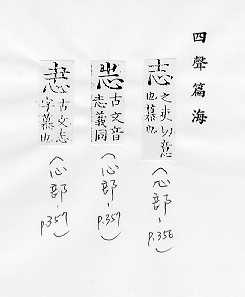 四聲篇海
志 之吏切意也慕也
（心部－P.356）
𢗍 古文音志義同
（心部－P.357）
古文志字慕也
（心部－P.357）